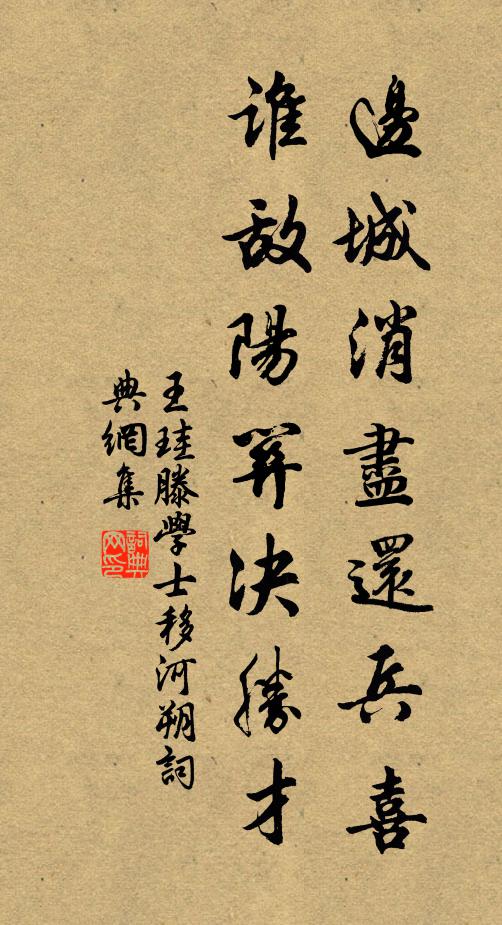 邊城消盡還兵喜
誰敵陽算決勝才
王珪滕學士移河朔詞
典網集
詞典
网印